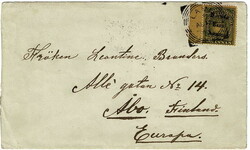 Fröken Leontine Branders.
Allégatan No 14.
Åbo. Finland
Europa.